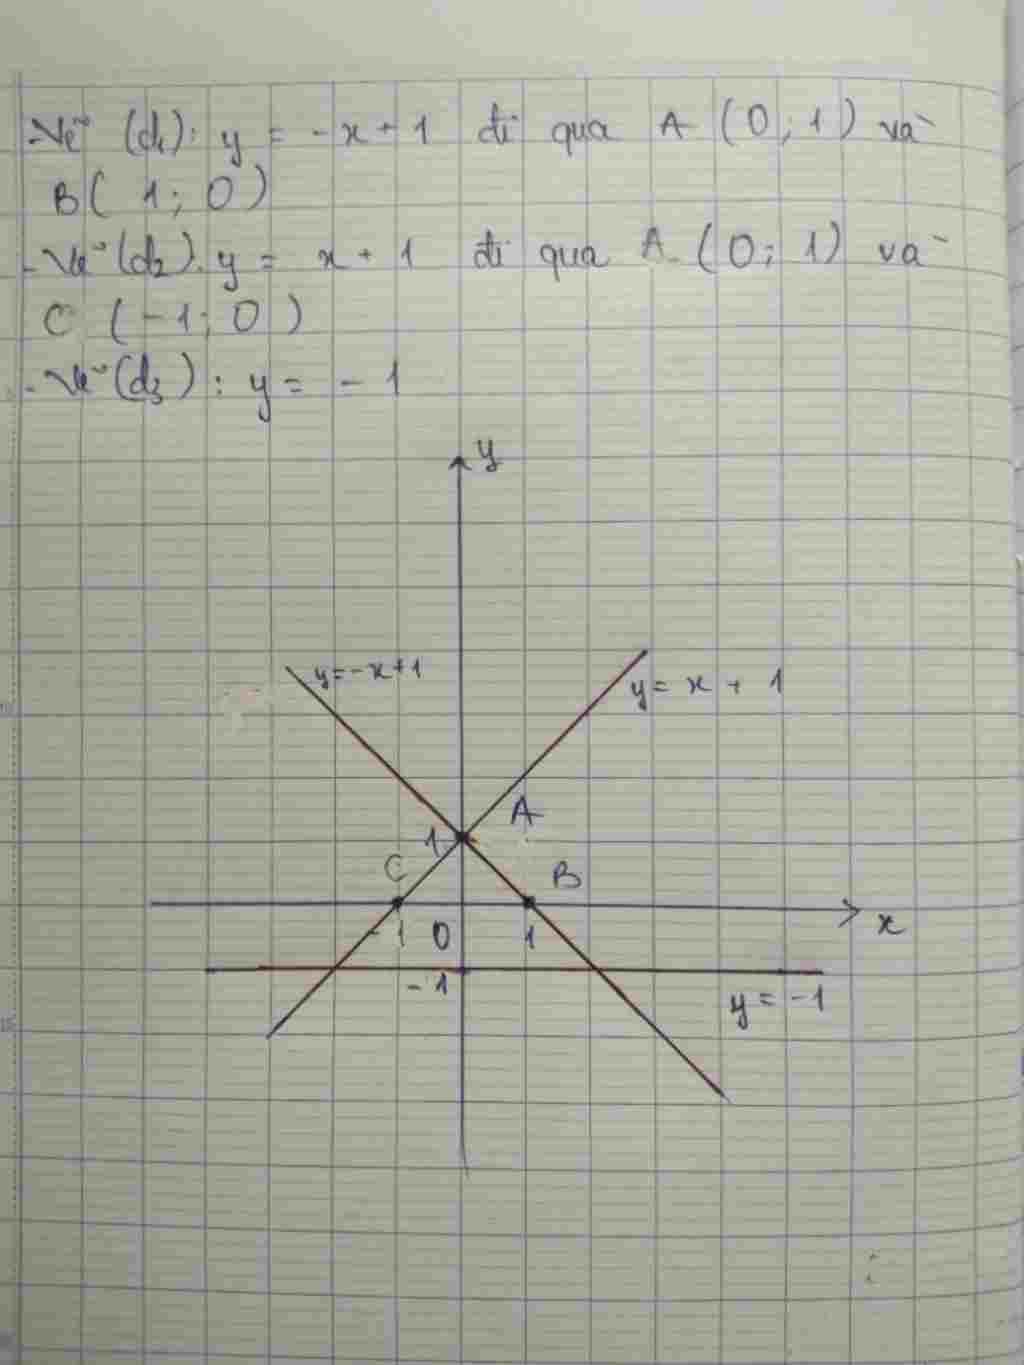 -Vẽ (d₁): y = -x + 1 đi qua A (0; 1) và
B( 1; 0)
-Vẽ (d₂). y = x + 1 đi qua A (0; 1) và
C (-1; 0)
-Vẽ (d₃) : y = - 1
y
y=-x+1
y= x + 1
A
1
C
B
x
-1
0
1
-1
y = -1